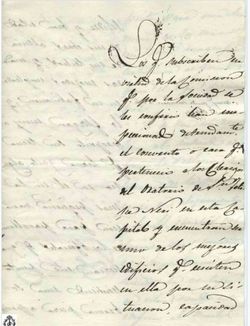 Los q.e subscriben en
virtud de la comision
q.e por la Sociedad se
les confirió han ins-
peccionado detenidamte.
el convento o casa q.e
pertenecia a los Clerigos
del Oratorio de S.n Feli-
pe Neri en esta Ca-
pital y encuentran ser
uno de los mejores
edificios q.e existen
en ella por su si-
tuacion capacidad